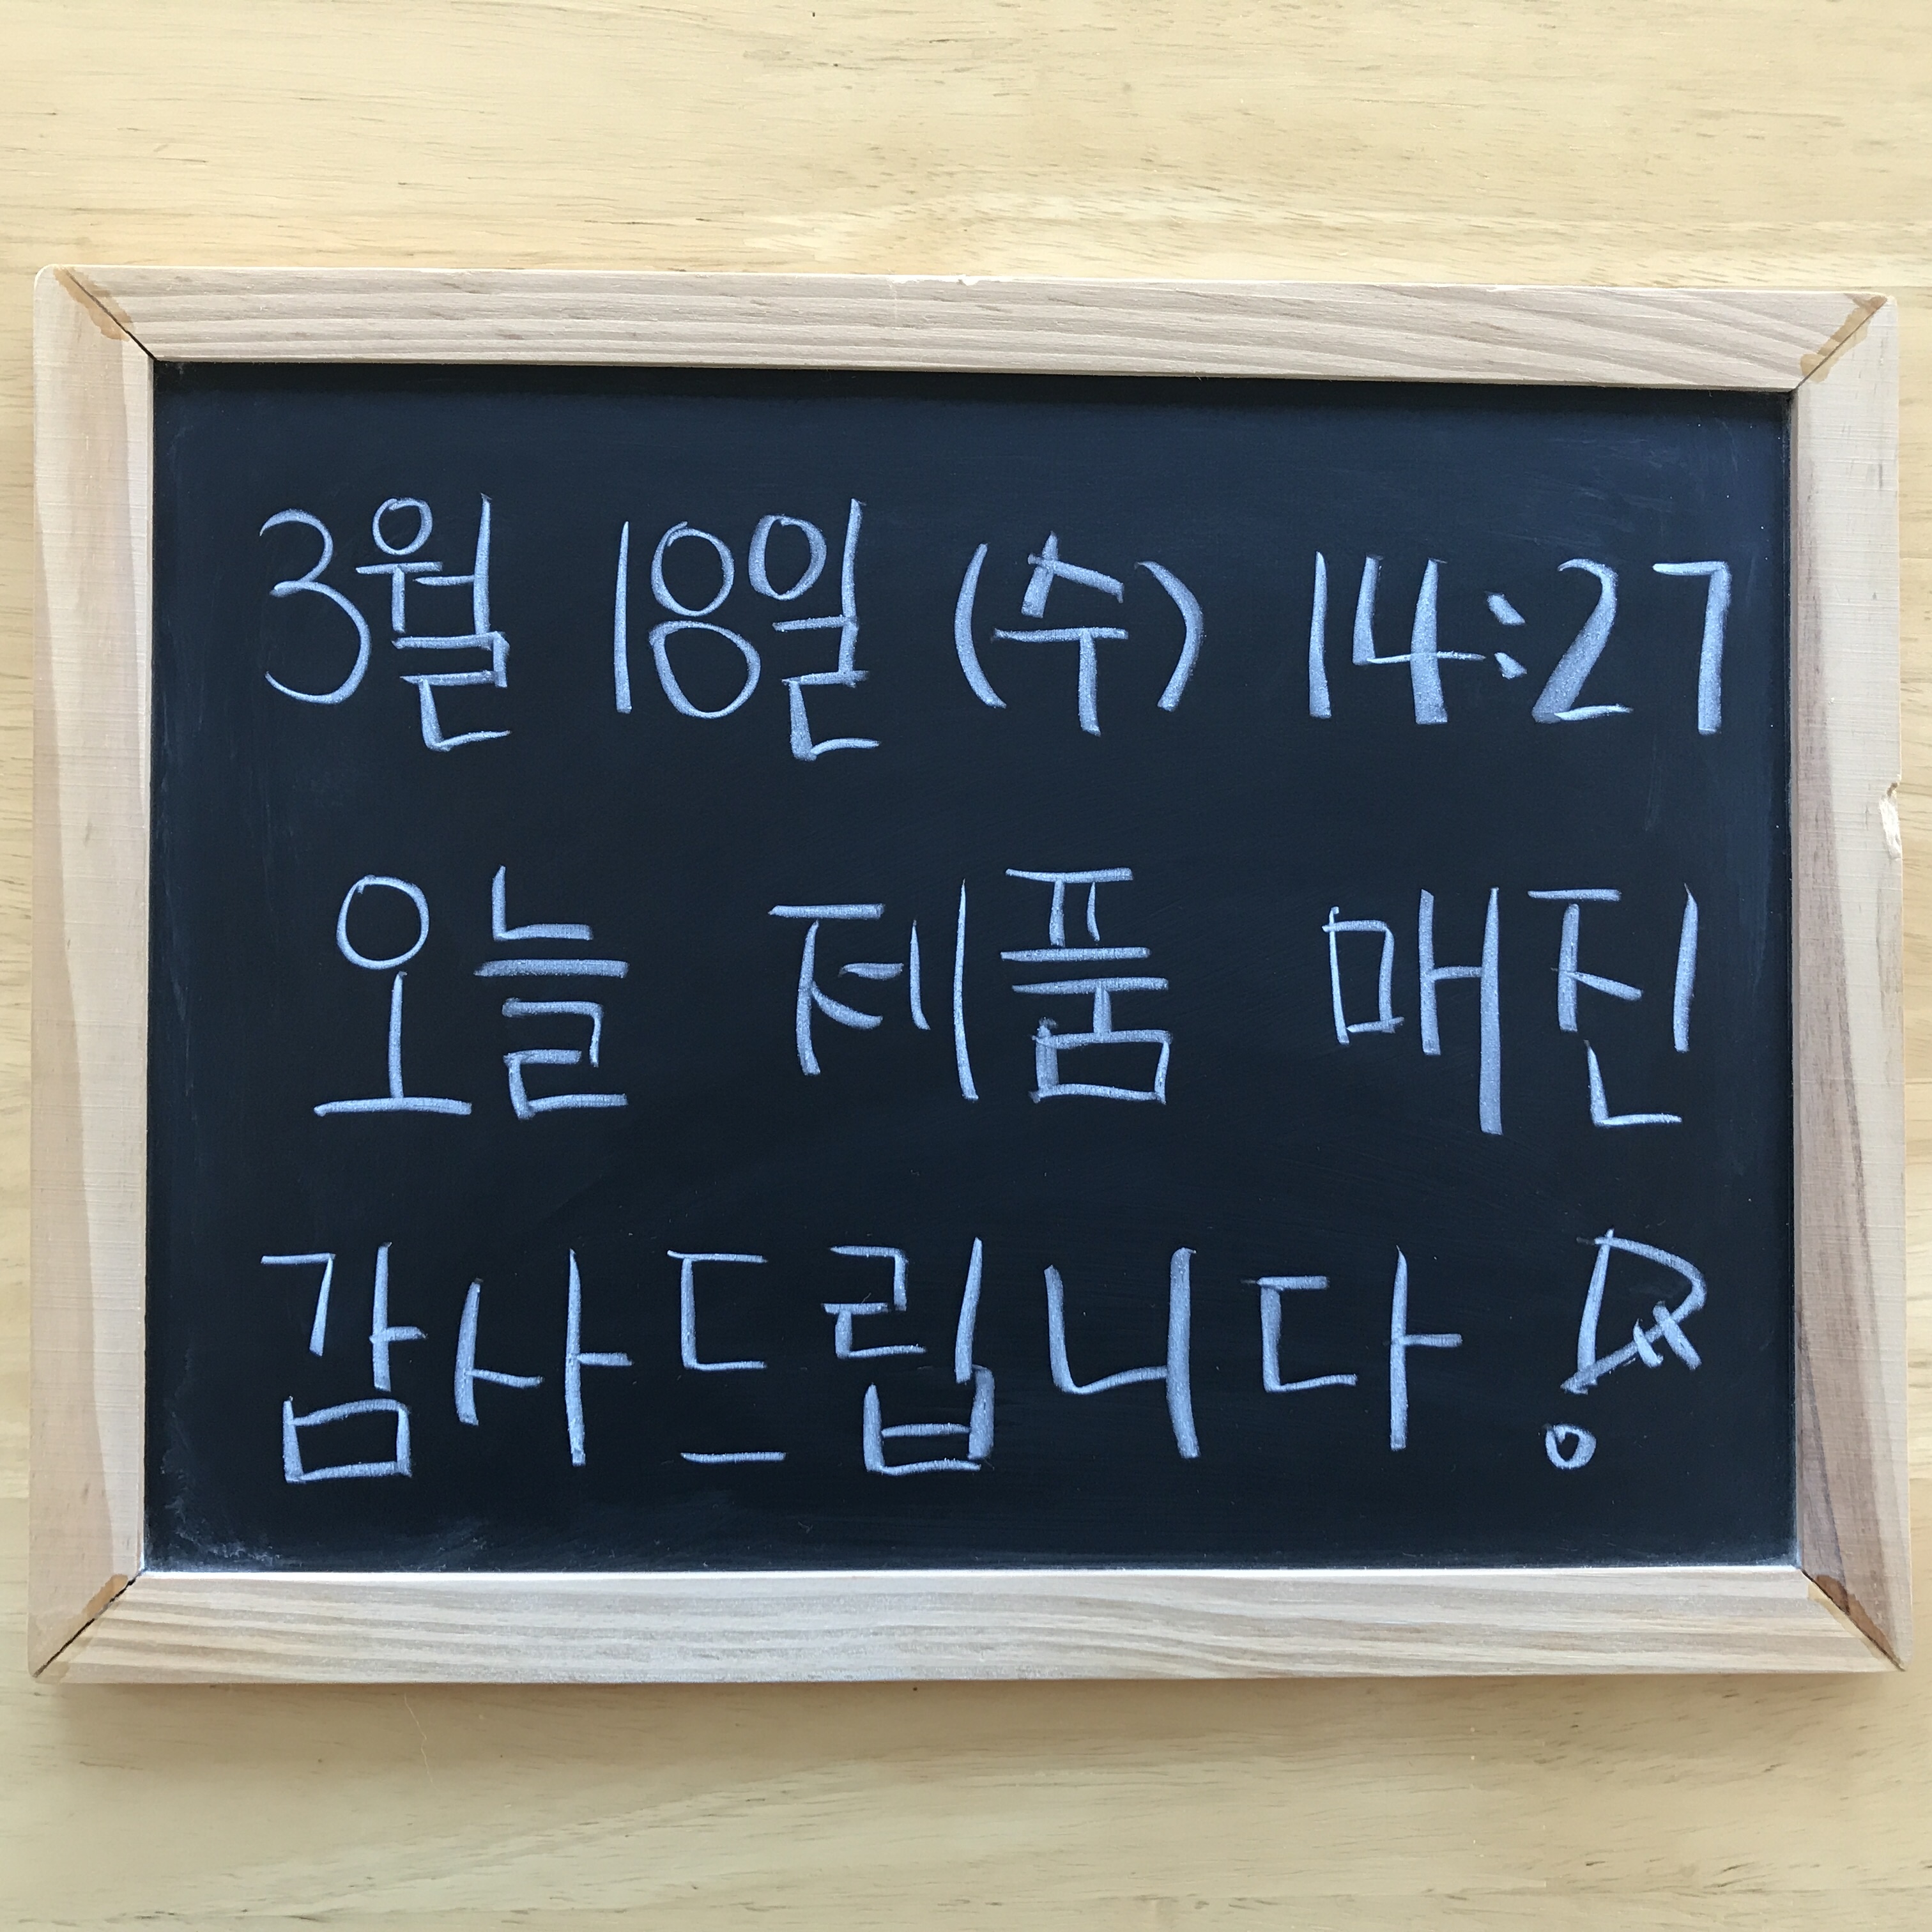 3월 18일 (수) 14:27
오늘 제품 매진
감사드립니다!